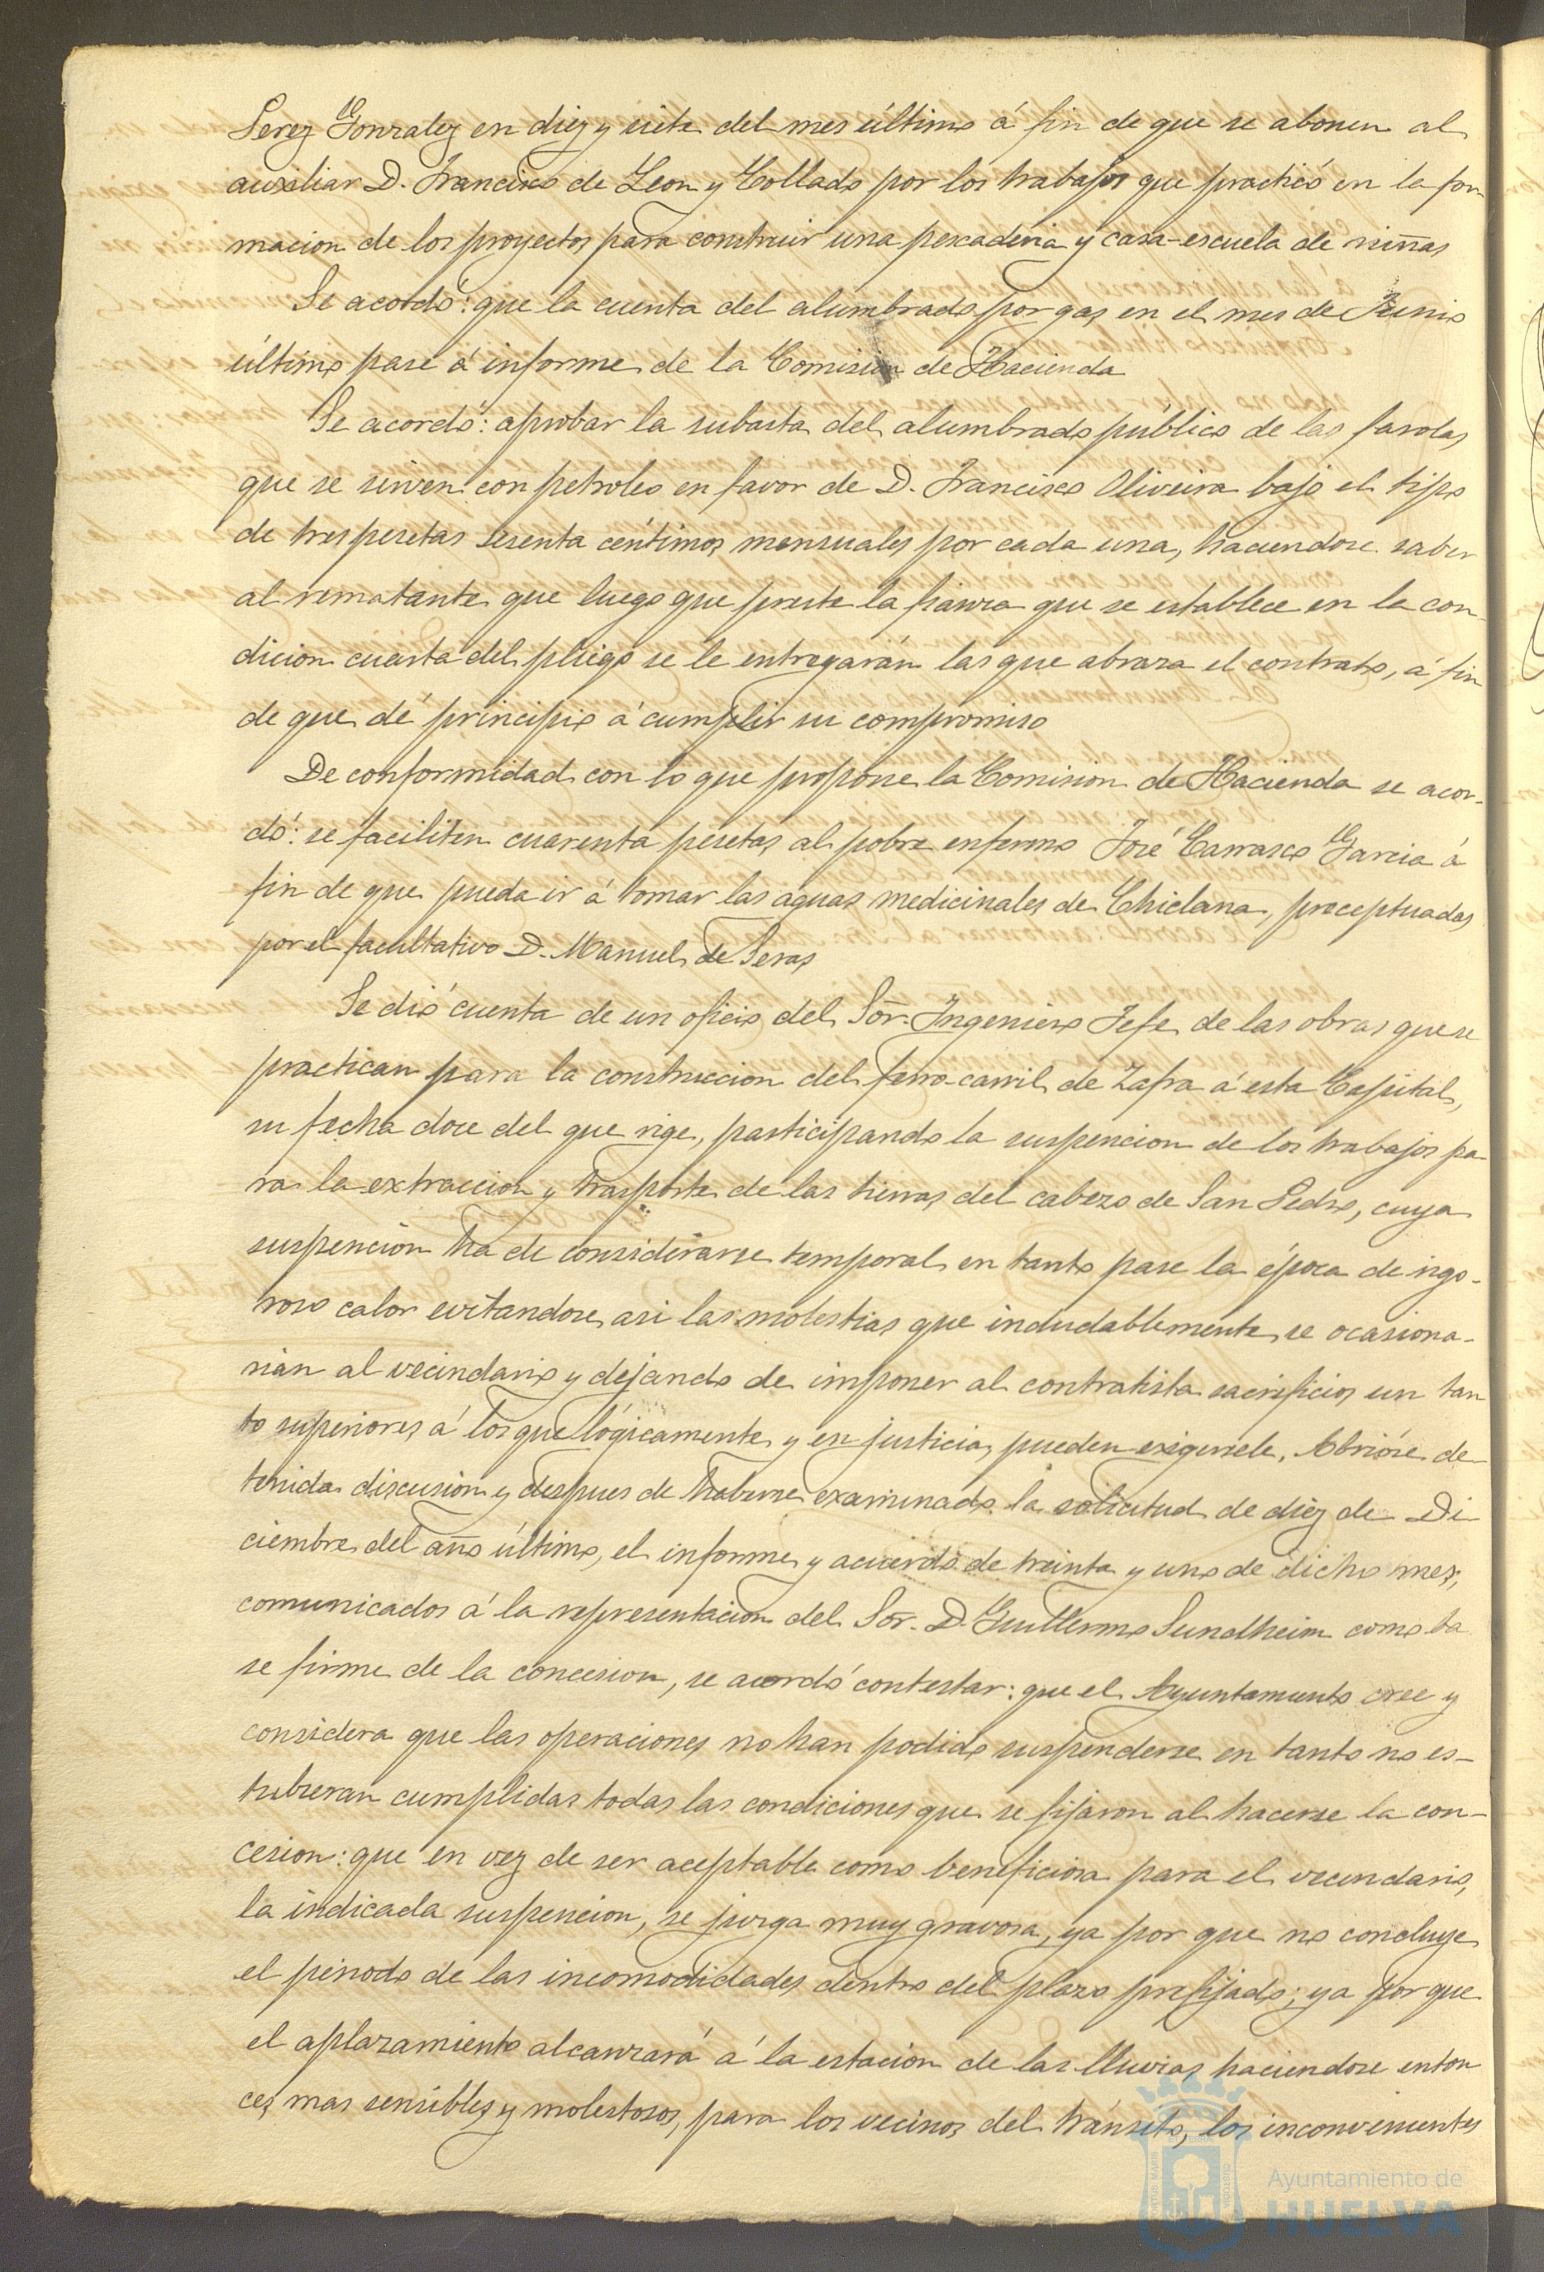 Perez Gonzalez en diez y siete del mes último á fin de que se abonen al
auxiliar D. Francisco de Leon y Collado por los trabajos que practicó en la for
macion de los proyectos para construir una pescaderia y casa-escuela de niñas
Se acordó: que la cuenta del alumbrado por gas en el mes de Junio
último pase á informe de la Comision de Hacienda
Se acordó: aprobar la subasta del alumbrado público de las farolas
que se sirven con petroleo en favor de D. Francisco Oliveira bajo el tipo
de tres pesetas sesenta céntimos mensuales por cada una, haciendose saber
al rematante que luego que preste la fianza que se establece en la con-
dicion cuarta del pliego se le entregarán las que abraza el contrato, á fin
de que dé principio á cumplir su compromiso
De conformidad con lo que propone la Comision de Hacienda se acor-
dó: se faciliten cuarenta pesetas al pobre enfermo José Carrasco Garcia á
fin de que pueda ir á tomar las aguas medicinales de Chiclana, preceptuadas
por el facultativo D. Manuel de Seras
Se dió cuenta de un oficio del Sor. Ingeniero Jefe de las obras que se
practican para la construccion del ferro-carril de Zafra á esta Capital,
su fecha doce del que rige, participando la suspencion de los trabajos pa-
ra la extraccion y trasporte de las tierras del cabezo de San Pedro, cuya
suspencion ha de considerarse temporal en tanto pase la época de rigo-
roso calor evitandose asi las molestias que indudablemente se ocasiona-
rian al vecindario y dejando de imponer al contratista sacrificios un tan
to superiores á los que lógicamente y en justicia pueden exigirsele. Abrióse de-
tenida discusion y despues de haberse examinado la solicitud de diez de Di-
ciembre del año último, el informe y acuerdo de treinta y uno de dicho mes,
comunicados á la representacion del Sor. D. Guillermo Sundheim como ba
se firme de la concesion, se acordó contestar: que el Ayuntamiento cree y
considera que las operaciones no han podido suspenderse en tanto no es-
tubieran cumplidas todas las condiciones que se fijaron al hacerse la con-
cesion: que en vez de ser aceptable como beneficiosa para el vecindario,
la indicada suspencion, se juzga muy gravosa, ya por que no concluye
el periodo de las incomodidades dentro del plazo prefijado; ya por que
el aplazamiento alcanzará á la estacion de las lluvias haciendose enton
ces mas sensibles y molestosos, para los vecinos del tránsito, los inconvenientes
Ayuntamiento de
HUELVA